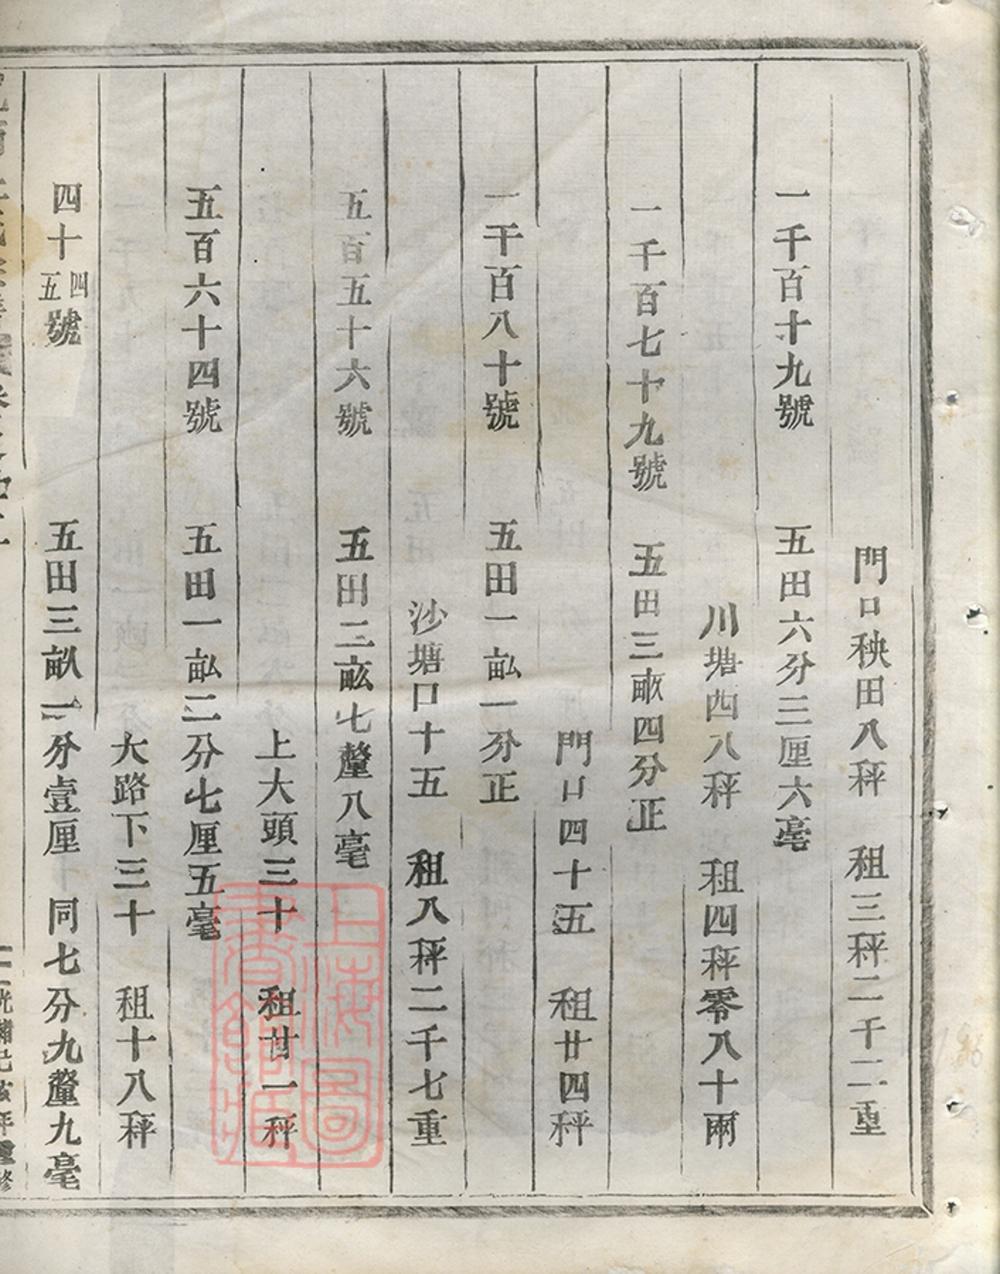 門口秧田八秤　租三秤二千二重
一千百十九號　五田六分三厘六毫
川塘四八秤　租四秤零八十兩
一千百七十九號　五田三畝四分正
門口四十五　租廿四秤
一千百八十號　五田一畝一分正
沙塘口十五　租八秤二千七重
五百五十六號　五田二畝七釐八毫
上大頭三十　租廿一秤
五百六十四號　五田一畝二分七厘五毫
大路下三十　租十八秤
四十四五號　五田三畝二分壹厘　同七分九釐九毫
光緒己亥年重修
上海圖書館藏